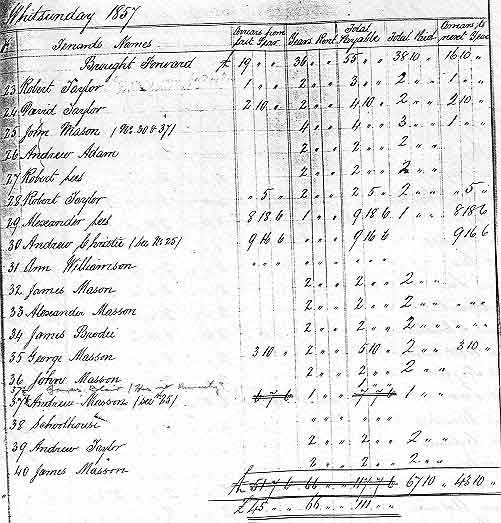 Whitsunday 1857
No Tenants Names Arrears from last Year Years Rent Total Payable Total Paid Arrears to next Year
Brought Forward £ 19 " " 36 " " 55 " " 38 10 " 16 10 "
23 Robert Taylor 1 " " 2 " " 3 " " 2 " " 1 " "
24 David Taylor 2 10 " 2 " " 4 10 " 2 " " 2 10 "
25 John Mason (Nos 30 & 37) 4 " " 4 " " 3 " " 1 " "
26 Andrew Adam 2 " " 2 " " 2 " "
27 Robert Lees 2 " " 2 " " 2 " "
28 Robert Taylor " 5 " 2 " " 2 5 " 2 " " " 5 "
29 Alexander Lees 8 18 6 1 " " 9 18 6 1 " " 8 18 6
30 Andrew Christie (See No 25) 9 16 6 " " 9 16 6 9 16 6
31 Ann Williamson " " " " " " " "
32 James Mason 2 " " 2 " " 2 " "
33 Alexander Masson 2 " " 2 " " 2 " " " " "
34 James Brodie 2 " " 2 " " 2 " " " " "
35 George Masson 3 10 " 2 " " 5 10 " 2 " " 3 10 "
36 John Masson 2 " " 2 " " 2 " "
37 Andrew Masson (See No 25) 6 7 6 1 " " 7 7 6 1 " "
38 Schoolhouse " " " " " "
39 Andrew Taylor 2 " " 2 " " 2 " "
40 James Masson 2 " " 2 " " 2 " "
£ 51 7 6 66 " " 117 7 6 67 10 " 43 10 "
£ 45 " " 66 " " 111 " "